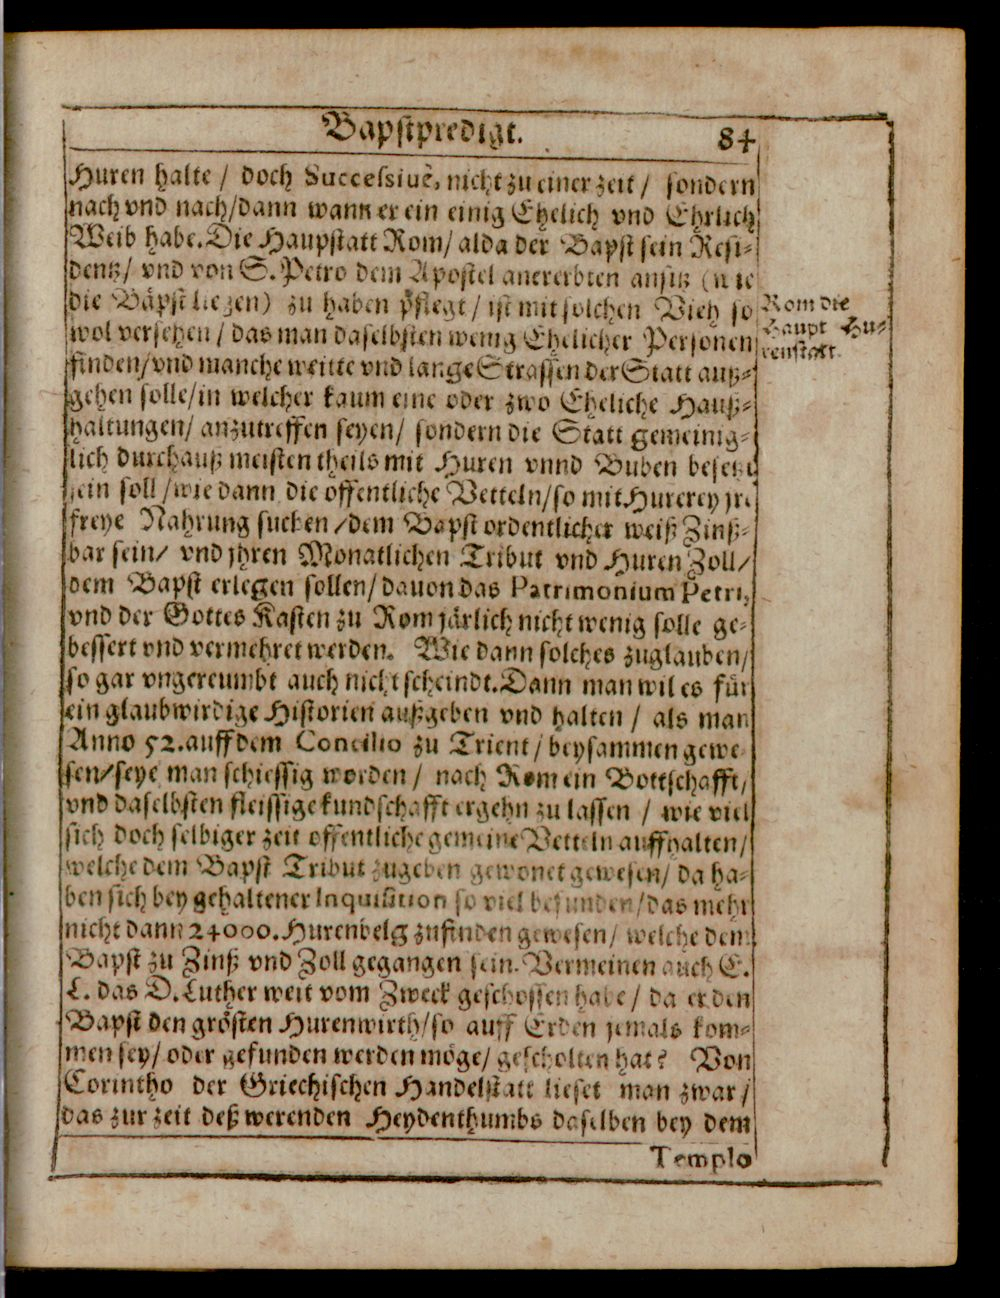 Bapstpredigt. 84
Huren halte / doch Successiuè, nicht zu einer zeit / sondern
nach vnd nach/dann wann er ein einig Ehelich vnd Ehrlich
Weib habe. Die Haupstatt Rom/ alda der Bapst sein Resi-
dentz/ vnd von S. Petro dem Apostel anererbten ansitz (wie
die Bäpst liegen) zu haben pflegt / ist mit solchen Vieh so
wol versehen / das man daselbsten wenig Ehelicher Personen
finden/vnd manche weitte vnd lange Strassen der Statt auß-
gehen solle/in welcher kaum eine oder zwo Eheliche Hauß-
haltungen/ anzutreffen seyen/ sondern die Statt gemeinig-
lich durchauß meisten theils mit Huren vnnd Buben besetzt
sein soll /wie dann die offentliche Vetteln/so mit Hurerey jre
freye Nahrung suchen /dem Bapst ordentlicher weiß Zinß-
bar sein/ vnd jhren Monatlichen Tribut vnd Huren Zoll/
dem Bapst erlegen sollen/ dauon das Patrimonium Petri,
vnd der Gottes Kasten zu Rom järlich nicht wenig solle ge-
bessert vnd vermehret werden. Wie dann solches zuglauben/
so gar vngereumbt auch nicht scheindt. Dann man wil es für
ein glaubwirdige Historien außgeben vnd halten / als man
Anno 52. auff dem Concilio zu Trient / beysammen gewe
sen/seye man schiessig worden / nach Rom ein Bottschafft/
vnd daselbsten fleissige kundschafft ergehn zu lassen / wie viel
sich doch selbiger zeit offentliche gemeine Vetteln auffhalten/
welche dem Bapst Tribut zugeben gewonet gewesen/ da ha-
ben sich bey gehaltener Inquisition so viel befunden/das mehr
nicht dann 24000. Hurenbelg zufinden gewesen/ welche dem
Bapst zu Zinß vnd Zoll gegangen sein. Vermeinen auch E.
L. das D. Luther weit vom Zweck geschossen habe / da er den
Bapst den grösten Hurenwirth/so auff Erden jemals kom-
men sey/ oder gefunden werden möge/ gescholten hat? Von
Corintho der Griechischen Handelstatt lieset man zwar /
das zur zeit deß werenden Heydenthumbs daselben bey dem
Templo
Rom die
Haupt Hu-
renstatt